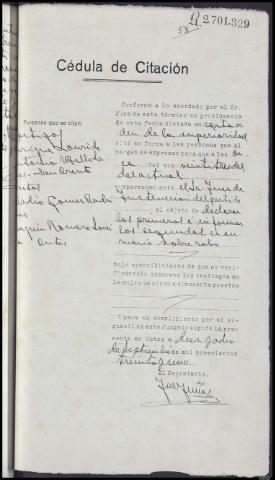 R 2701.329
58
Cédula de Citación
Personas que se citan
Testigos
Enrique Lourido
Antonio Mallo
San Orente
Peritos
Gomez Rodri
Joaquin Romero
Outes
Conforme a lo acordado por el Sr.
Juez de este término en providencia
de esta fecha dictada en carta or
den de la superioridad
cito en forma a las personas que al
margen se expresan para que a las on
ce del día veintitres
del actual
comparezcan ante el Sr. Juez de
Instruccion del partido
el objeto de declarar
los primeros e informar
los segundos en su
mario sobre robo
bajo apercibimiento de que no veri-
ficándolo incurren los testigos en
la multa de cinco a cincuenta pesetas
Y para su cumplimiento por el al-
guacil de este Juzgado expido la pre-
sente en Outes a diez y ocho
de Septiembre de mil novecientos
treinta y uno
El Secretario,